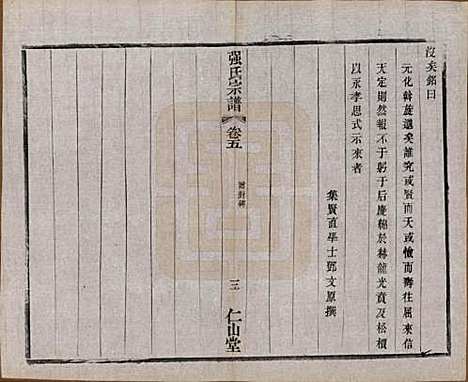 沒矣銘曰
元化斡旋邈矣誰究或賢而夭或憸而壽往屈來信
天定則然報不于躬于后慶緜於赫龍光賁及松檟
以永孝思式示來者
集賢直學士鄧文原撰
强氏宗譜
卷五
三
仁山堂